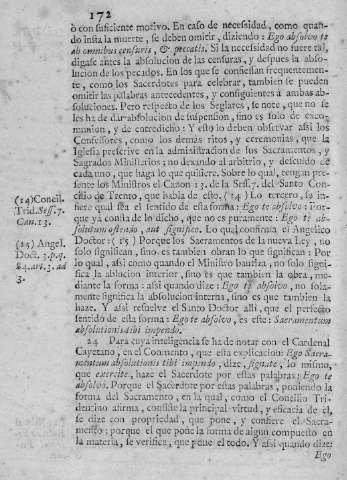 172
ò con suficiente motivo. En caso de necessidad, como quan-
do insta la muerte, se deben omitir, diziendo: Ego absolvo te
ab omnibus censuris, & peccatis. Si la necessidad no fuere tal,
digase antes la absolucion de las censuras, y despues la abso-
lucion de los pecados. En los que se confiessan frequentemen-
te, como los Sacerdotes para celebrar, tambien se pueden
omitir las palabras antecedentes, y consiguientes à ambas ab-
soluciones. Pero respecto de los Seglares, se note, que no se
les ha de dar absolucion de suspension, sino es solo de exco-
munion, y de entredicho: Y esto lo deben observar assi los
Confessores, como los demàs ritos, y ceremonias, que la
Iglesia prescrive en la administracion de los Sacramentos, y
Sagrados Ministerios; no dexando al arbitrio, y descuido de
cada uno, que haga lo que quisiere. Sobre lo qual, tengan pre-
sente los Ministros el Canon 13. de la Sess. 7. del Santo Con-
cilio de Trento, que habla de esto. (14) Lo tercero, se in-
fiere qual sea el sentido de esta forma: Ego te absolvo: Por-
que yà consta de lo dicho, que no es puramente: Ego te ab-
solutum ostendo, aut significo. Lo qual confirma el Angelico
Doctor: (15) Porque los Sacramentos de la nueva Ley, no
solo significan, sino es tambien obran lo que significan: Por
lo qual, assi como quando el Ministro bautiza, no solo signi-
fica la ablucion interior, sino es que tambien la obra, me-
diante la forma: assi quando dize: Ego te absolvo, no sola-
mente significa la absolucion interna, sino es que tambien la
haze. Y assi resuelve el Santo Doctor alli, que el perfecto
sentido de esta forma: Ego te absolvo, es este: Sacramentum
absolutionis tibi impendo.
(14) Concil.
Trid. Sess. 7.
Can. 13.
(15) Angel.
Doct. 3. p. q.
84. art. 3. ad
3.
24 Para cuya inteligencia se ha de notar con el Cardenal
Cayetano, en el Comento, que esta explicacion: Ego Sacra-
mentum absolutionis tibi impendo, dize, signate, lo mismo,
que exercite, haze el Sacerdote por estas palabras: Ego te
absolvo. Porque el Sacerdote por estas palabras, poniendo la
forma del Sacramento, en la qual, como el Concilio Tri-
dentino afirma, consiste la principal virtud, y eficacia de èl,
se dize con propriedad, que pone, y confiere el Sacra-
mento: porque el que pone la forma de algun compuesto en
la materia, se verifica, que pone el todo. Y assi quando dize:
Ego